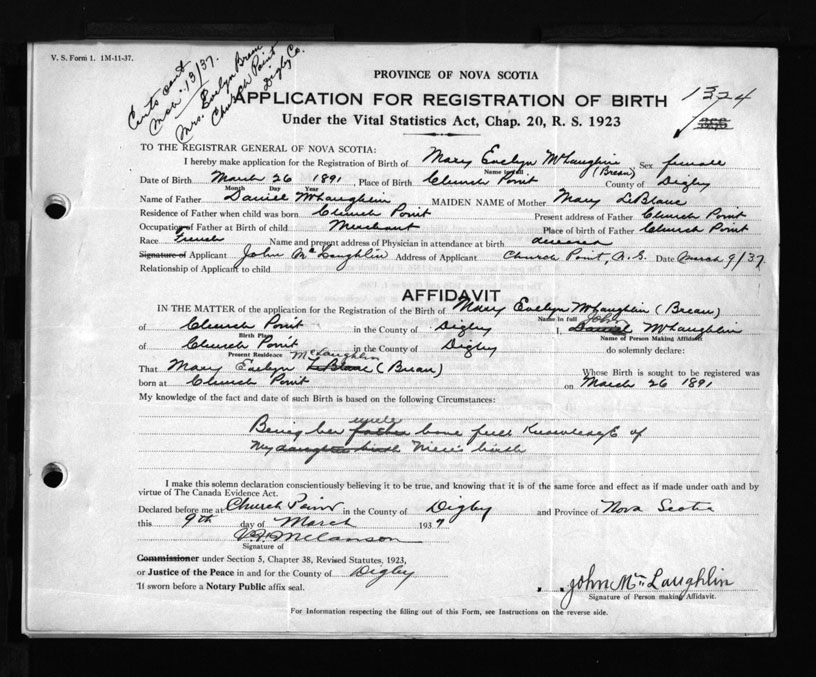 V. S. Form 1. 1M-11-37.
Certs sent
Mar. 13/37.
Mrs. Evelyn Breau
Church Point
Digby Co.
PROVINCE OF NOVA SCOTIA
APPLICATION FOR REGISTRATION OF BIRTH
1324
Under the Vital Statistics Act, Chap. 20, R. S. 1923
TO THE REGISTRAR GENERAL OF NOVA SCOTIA:
I hereby make application for the Registration of Birth of Mary Evelyn McLaughlin (Breau) Sex female
Name in full
Date of Birth March 26 1891, Place of Birth Church Point County of Digby
Month Day Year
Name of Father Daniel McLaughlin MAIDEN NAME of Mother Mary LeBlanc
Residence of Father when child was born Church Point Present address of Father Church Point
Occupation of Father at Birth of child Merchant Place of birth of Father Church Point
Race French Name and present address of Physician in attendance at birth deceased
Signature of Applicant John McLaughlin Address of Applicant Church Point, N.S. Date March 9/37
Relationship of Applicant to child
AFFIDAVIT
IN THE MATTER of the application for the Registration of the Birth of Mary Evelyn McLaughlin (Breau)
Name in full
of Church Point in the County of Digby I, John Daniel McLaughlin
Birth Place Name of Person Making Affidavit
of Church Point in the County of Digby do solemnly declare:
Present Residence
That Mary Evelyn McLaughlin LeBlanc (Breau) Whose Birth is sought to be registered was
born at Church Point on March 26 1891
My knowledge of the fact and date of such Birth is based on the following Circumstances:
Being her uncle father have full KnowledgE of
My daughters birth Niece birth
I make this solemn declaration conscientiously believing it to be true, and knowing that it is of the same force and effect as if made under oath and by
virtue of The Canada Evidence Act.
Declared before me at Church Point in the County of Digby and Province of Nova Scotia
this 9th day of March 1937
Melanson
Signature of
Commissioner under Section 5, Chapter 38, Revised Statutes, 1923,
or Justice of the Peace in and for the County of Digby
If sworn before a Notary Public affix seal.
John McLaughlin
Signature of Person making Affidavit.
For Information respecting the filling out of this Form, see Instructions on the reverse side.